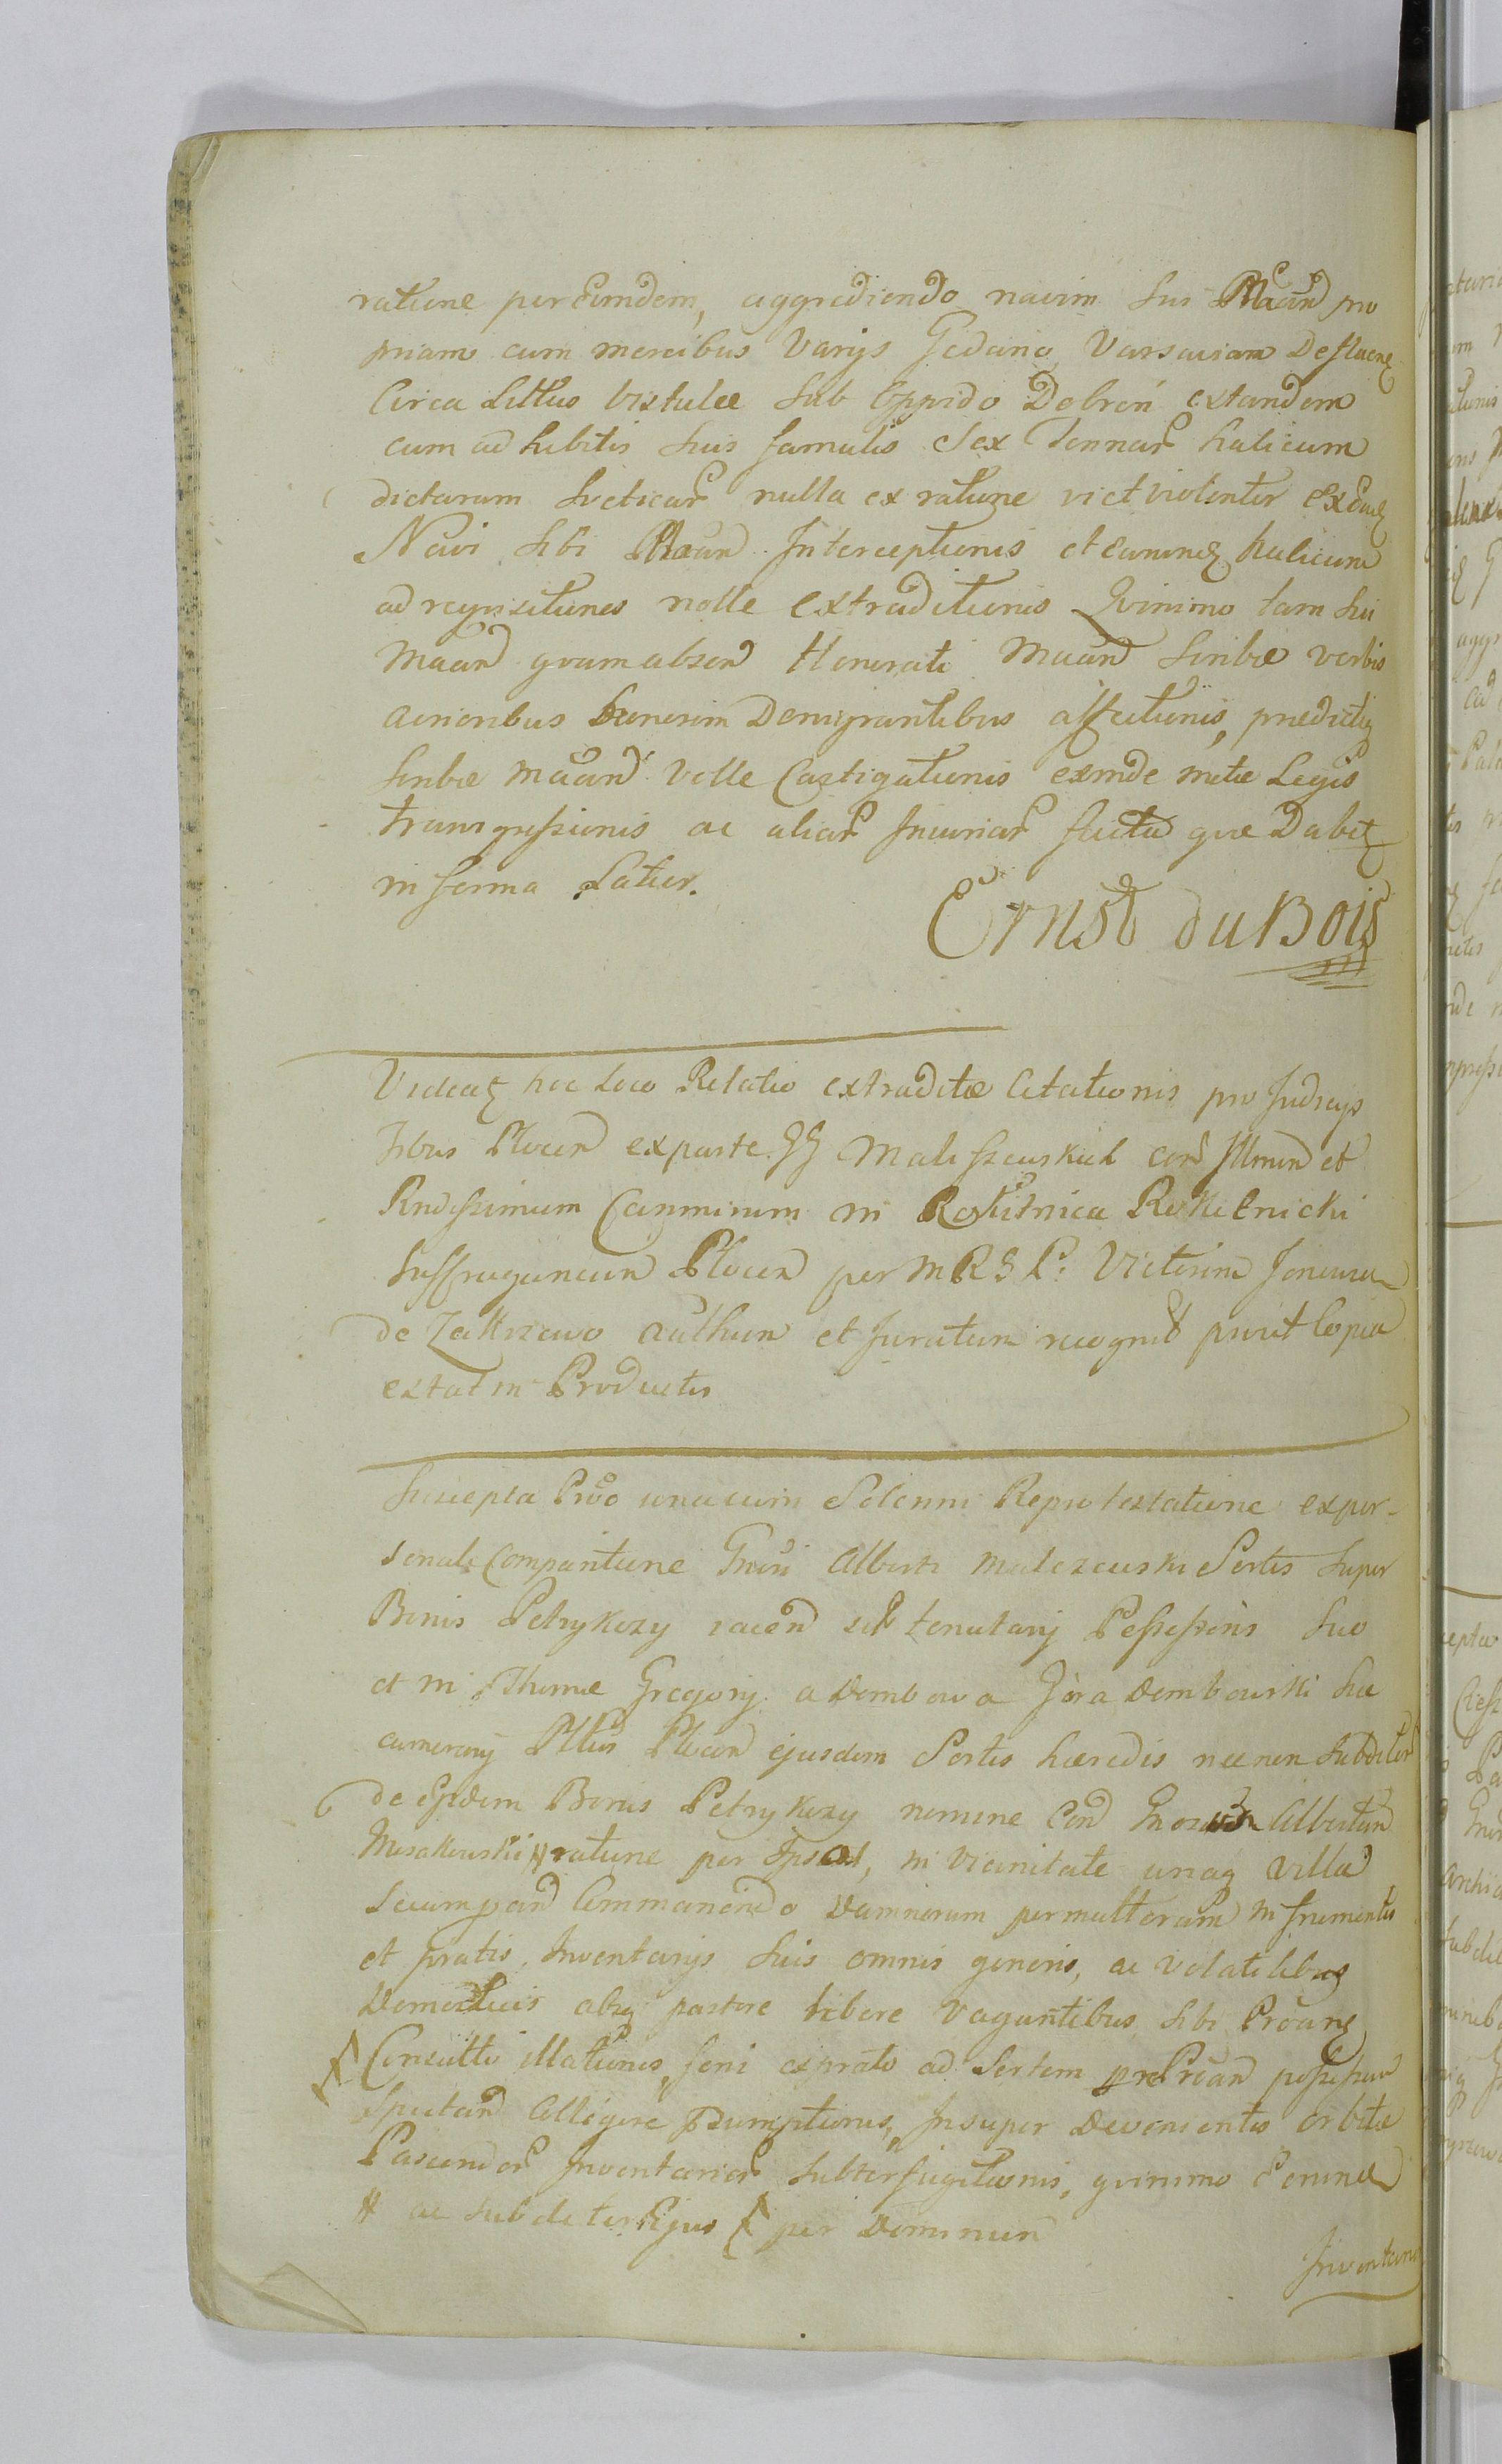 ratione per Eumdem, aggrediendo navim sui Maand pro
priam cum mercibus Varijs Gedano Varsaviam Defluen
Circa Littus Vistulae sub Oppido Dobrzn extandem
cum ad hibitis suis famulis Sex Tonnar halicum
dictarum sveticar nulla ex ratione vi et violenter ex Eadem
Navi sibi Maand Interceptionis et Earumdem halicum
ad requisitiones nolle Extraditionis Quinimo tam sui
Maand quam absen Honorati Maand scribae verbis
acrioribus honorem Denigrantibus affectionis, praedicti
scribae Maand Velle Castigationis exinde metae Legis
transgressionis ac aliar Iniuriar facta quae Dabit
in forma Latior.
Ernst du Bois
Videat hoc loco Relatio extraditae Citationis pro Judicijs
Tribus Plocen ex parte GG Maliszewskich con Illmum et
Rndissimum Casimirum in Rokitnica Rokitnicki
Suffraganeum Plocen per MRSP: Victorim Joneura
de Zakrzewo authen et Juratum recognit prout Copia
extat in Productis
Suscepta Prõo unacum Solenni Reprotestatione ex per-
sonali Comparitione Gnosi Alberti Malczewski Sortis super
Bonis Petrykozy iacen sub tenutarij Possessoris suo
et M Thomae Gregorij a Dembowa Góra Dembowski suc
camerarij Pttus Plocen ejusdem Sortis haeredis nec non subditor
de ejsdem Bonis Petrykozy nomine Con Gnosum Albertum
Mosakowski # ratione per Ipsos, in Vicinitate unaq Villa
secum par Commanendo Damnorum permultorum in frumentis
et pratis, Inventarijs suis omnis generis, ac Volatilibus
Domesticis absq pastore libere Vagantibus sibi Proan
Consulto illationis, feni ex prato ad Sortem Proan possessivam
Spectan Colligere praesumptionis, Insuper Devenientis orbitae
Pascendor Inventarior subterfugitionis, quinimo Eorumdem
# ac subditor Ejus per Dominum
Inventarior